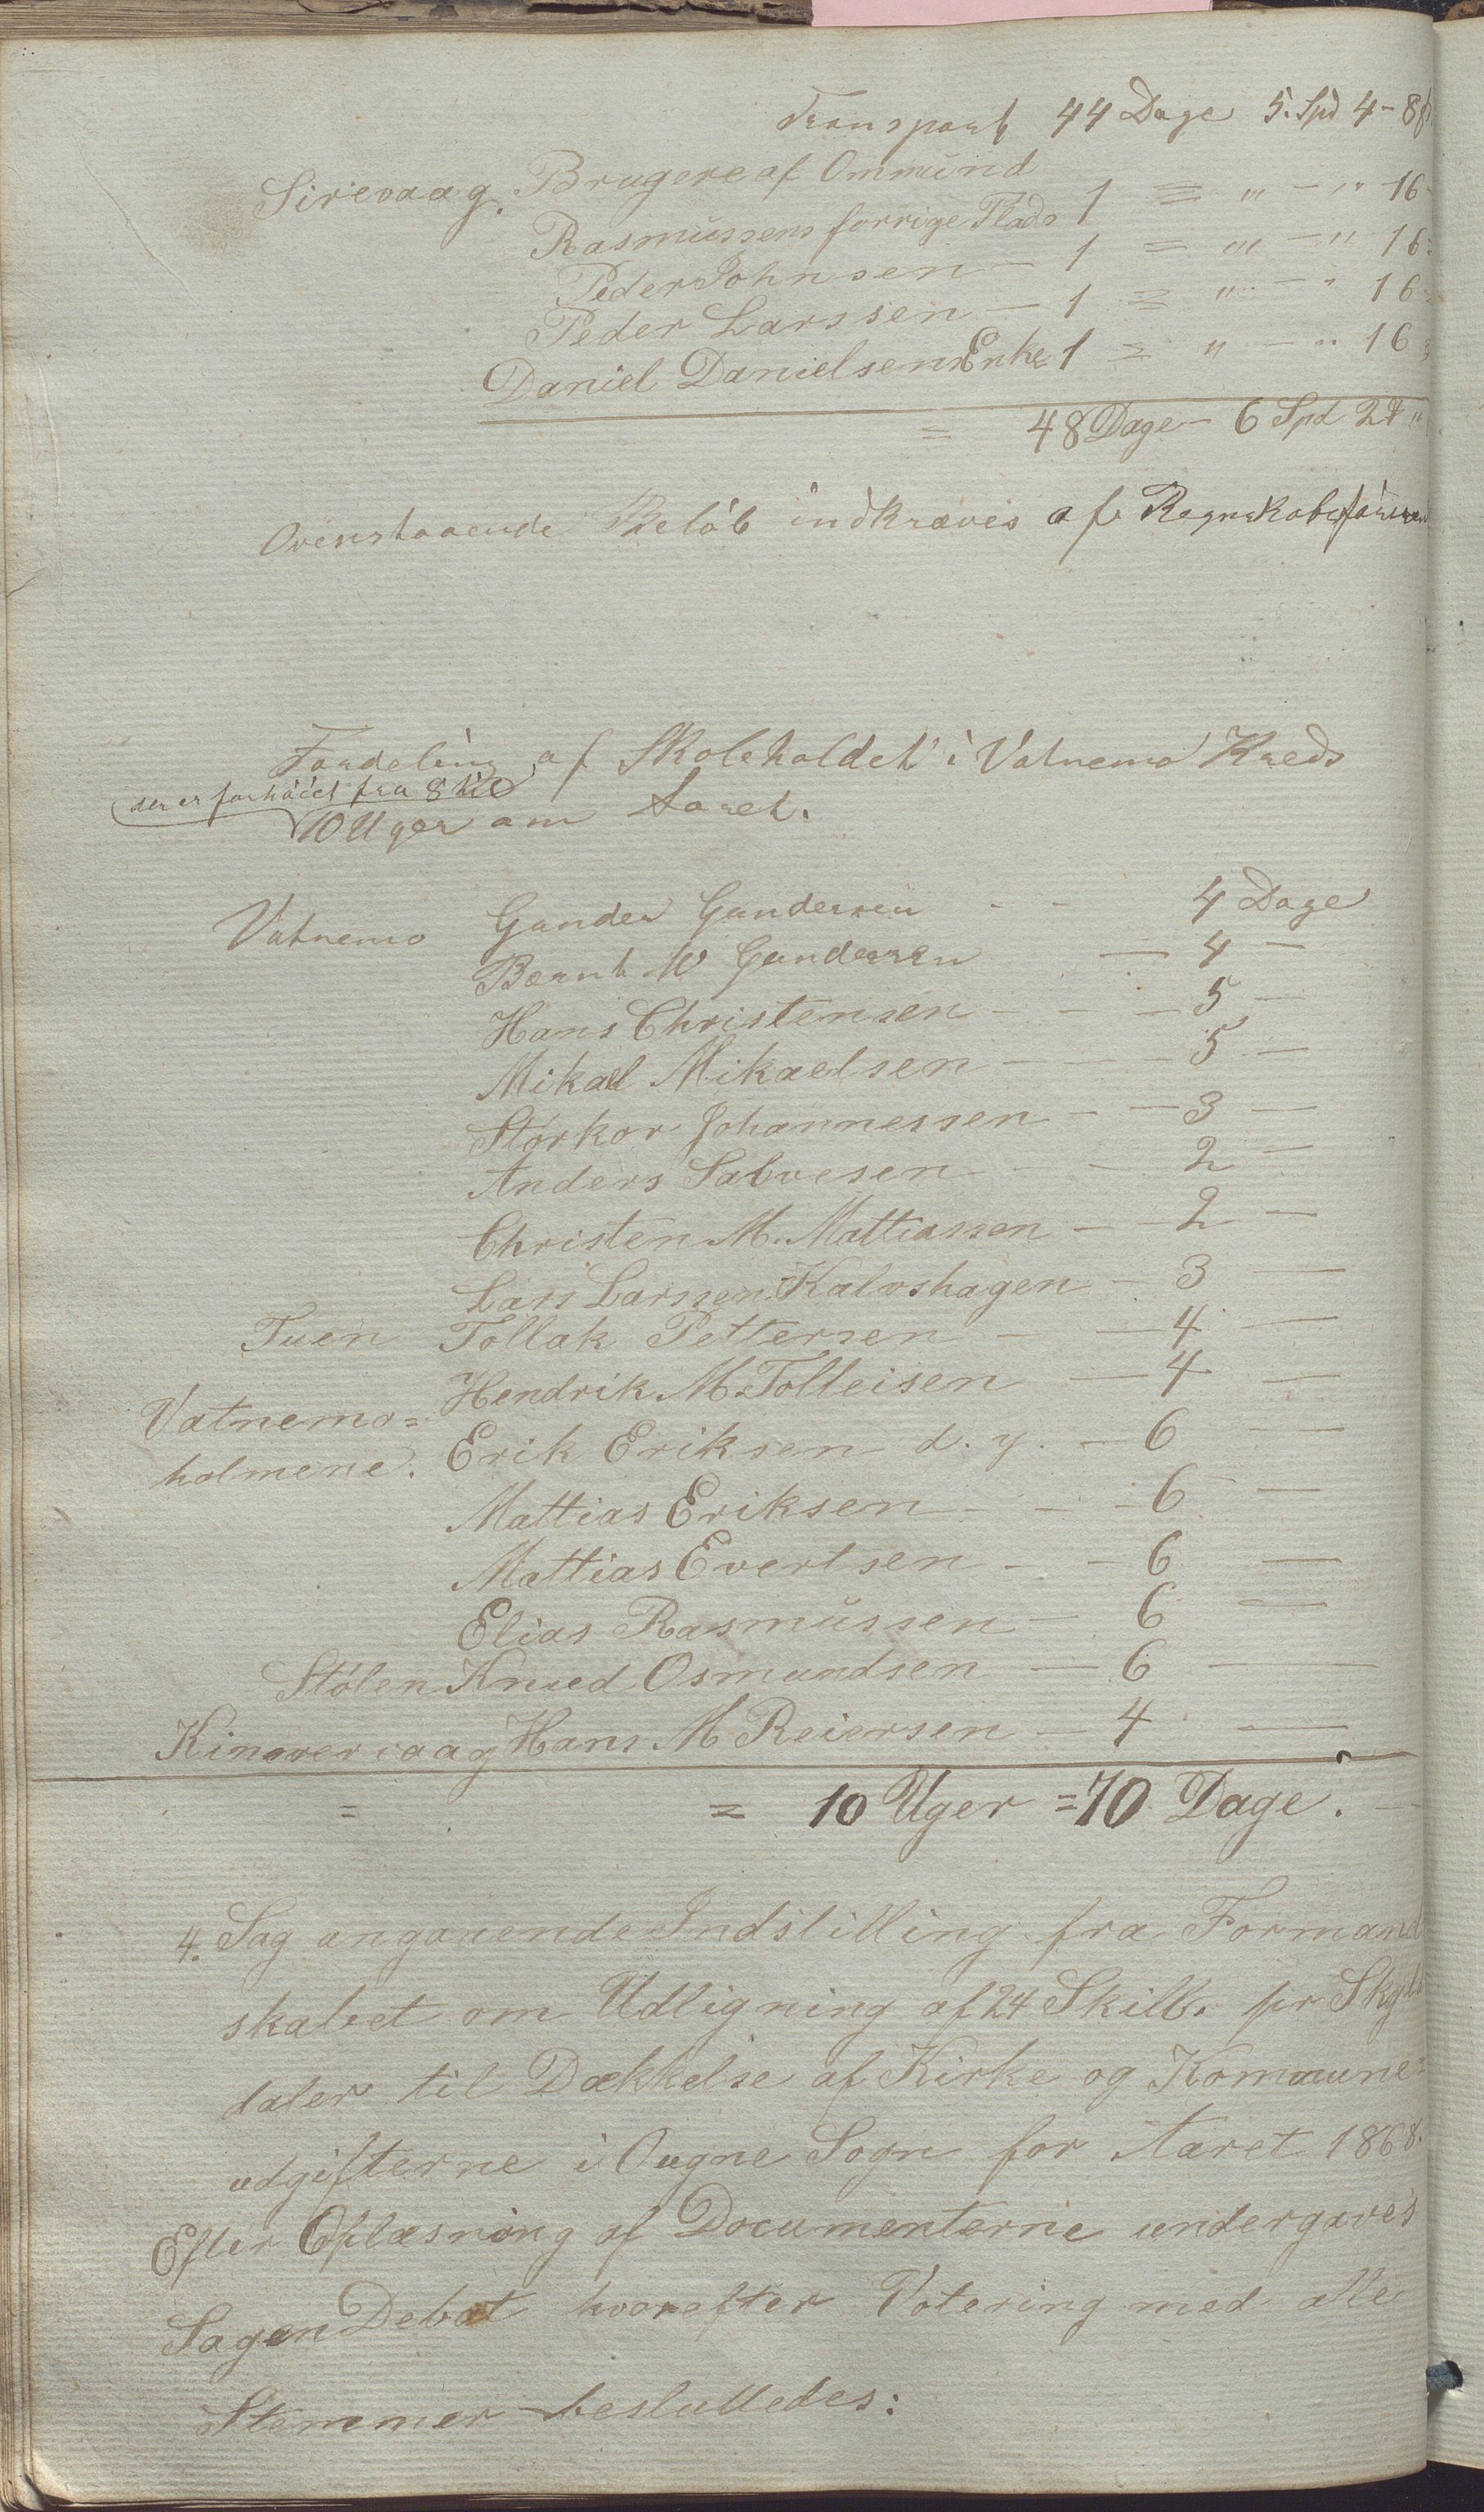 Transport 44 Dage 5. Spd 4 - 8 ß
Sirevaag. Brugere af Ommund
Rasmussens forrige Plads 1 = " - " 16 -
Peder Johnsen - 1 = " - " 16 -
Peder Larssen - 1 = " - " 16 -
Daniel Danielsens Enke 1 = " - " 16 -
= 48 Dage - 6 Spd 2 ort "
Ovenstaaende Beløb indkræves af Regnskabsføreren
Fordeling af Skoleholdet i Vatnemo Kreds
der er forhøiet fra 8 til
10 Uger om Aaret.
Vatnemo Gunder Gundersen - - 4 Dage
Bernt W Gundersen — 4 —
Hans Christensen - - - 5 —
Mikael Mikaelsen - - - 5 —
Størkor Johannessen - - 3 —
Anders Salvesen - - - 2 —
Christen M. Mattiassen - - 2 —
Lars Larssen Kalvshagen - 3 —
Tuen Tollak Pettersen — — 4 —
Hendrik M. Tolleisen — 4 —
Vatnemo=
holmene. Erik Eriksen d. y. - 6 —
Mattias Eriksen - - - 6 —
Mattias Evertsen - - 6 —
Elias Rasmussen - 6 —
Stølen Knud Osmundsen — 6 —
Hans M Reiersen — 4 —
= = 10 Uger = 70 Dage. —
4. Sag angaaende Indstilling fra Formand
skabet om Udligning af 24 Skill. pr Skyld
daler til Dækkelse af Kirke og Kommune=
udgifterne i Ougne Sogn for Aaret 1868.
Efter Oplæsning af Documenterne undergaves
Sagen Debat hvorefter Votering med alle
Stemmer besluttedes: